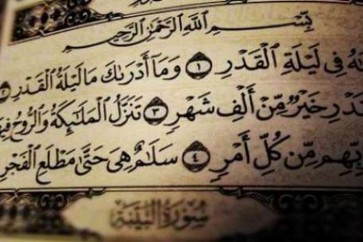 بِسْمِ ٱللَّهِ ٱلرَّحْمَٰنِ ٱلرَّحِيمِ
فِى لَيْلَةِ ٱلْقَدْرِ ١ وَمَآ أَدْرَىٰكَ مَا لَيْلَةُ ٱلْقَدْرِ ٢
خَيْرٌ مِّنْ أَلْفِ شَهْرٍ ٣ تَنَزَّلُ ٱلْمَلَٰٓئِكَةُ وَٱلرُّوحُ
مِّن كُلِّ أَمْرٍ ٤ سَلَٰمٌ هِىَ حَتَّىٰ مَطْلَعِ ٱلْفَجْرِ
سُورَةُ ٱلْبَيِّنَةِ